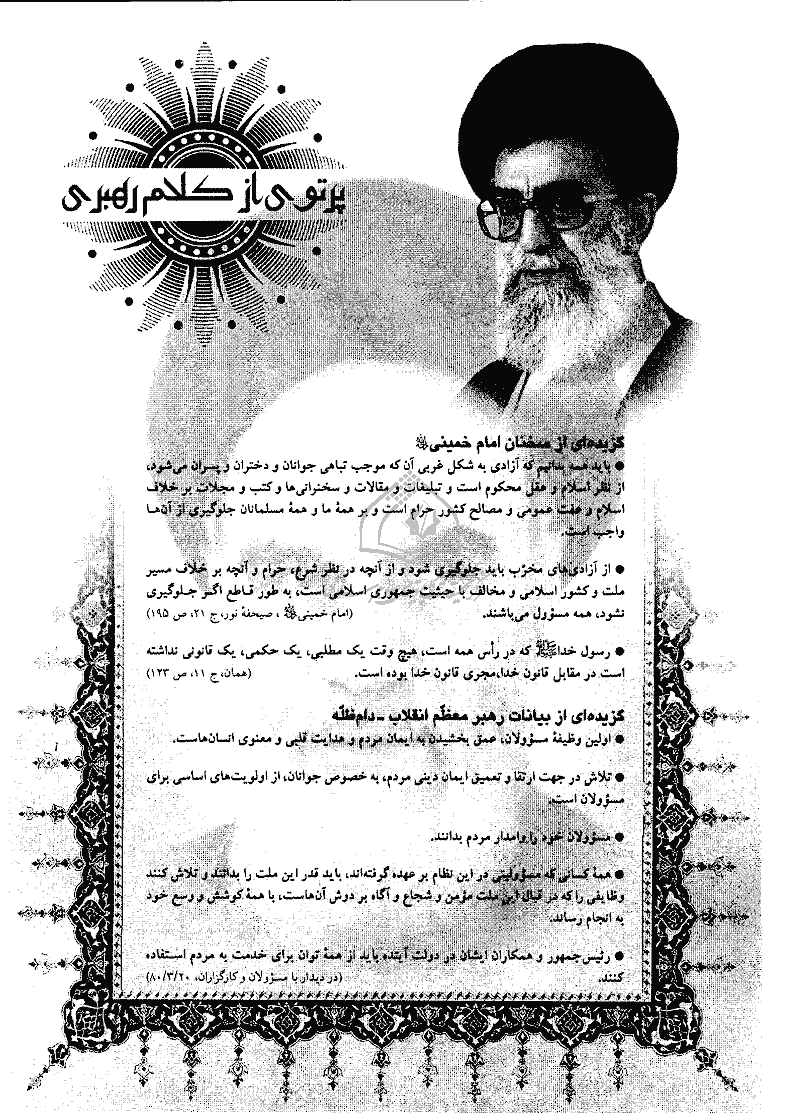 پرتوی از کلام رهبری
گزیده‌ای از سخنان امام خمینی
● باید همه بدانیم که آزادی به شکل غربی آن که موجب تباهی جوانان و دختران و پسران می‌شود،
از نظر اسلام و عقل محکوم است و تبلیغات و مقالات و سخنرانی‌ها و کتب و مجلات بر خلاف
اسلام و عفت عمومی و مصالح کشور حرام است و بر همهٔ ما و همهٔ مسلمانان جلوگیری از آن‌ها
واجب است.
● از آزادی‌های مخرّب باید جلوگیری شود و از آنچه در نظر شرع، حرام و آنچه بر خلاف مسیر
ملت و کشور اسلامی و مخالف با حیثیت جمهوری اسلامی است، به طور قاطع اگر جلوگیری
نشود، همه مسؤول می‌باشند. (امام خمینی، صحیفهٔ نور، ج ۲۱، ص ۱۹۵)
● رسول خداﷺ که در رأس همه است، هیچ وقت یک مطلبی، یک حکمی، یک قانونی نداشته
است در مقابل قانون خدا، مجری قانون خدا بوده است. (همان، ج ۱۱، ص ۱۲۳)
گزیده‌ای از بیانات رهبر معظّم انقلاب ـ دام‌ظلّه
● اولین وظیفهٔ مسؤولان، عمق بخشیدن به ایمان مردم و هدایت قلبی و معنوی انسان‌هاست.
● تلاش در جهت ارتقا و تعمیق ایمان دینی مردم، به خصوص جوانان، از اولویت‌های اساسی برای
مسؤولان است.
● مسؤولان خود را وامدار مردم بدانند.
● همهٔ کسانی که مسؤولیتی در این نظام بر عهده گرفته‌اند، باید قدر این ملت را بدانند و تلاش کنند
وظایفی را که در قبال این ملت مؤمن و شجاع و آگاه بر دوش آن‌هاست، با همهٔ کوشش و وسع خود
به انجام رساند.
● رئیس‌جمهور و همکاران ایشان در دولت آینده باید از همهٔ توان برای خدمت به مردم استفاده
کنند. (در دیدار با مسؤولان و کارگزاران، ۸۰/۳/۲۰)